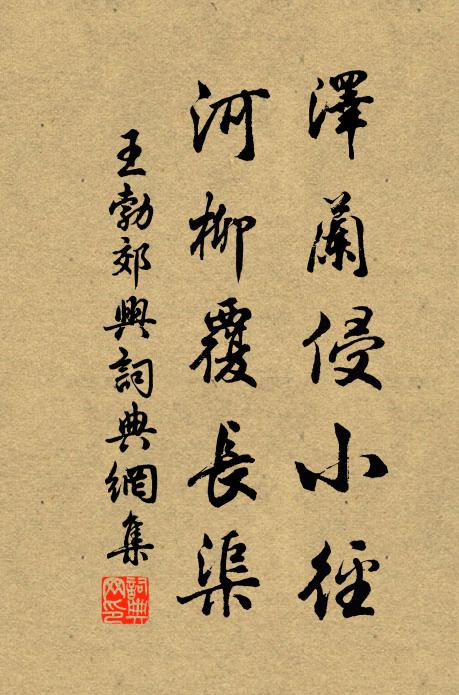 澤蘭侵小徑
河柳覆長渠
王勃郊興詞典網集
詞典網印